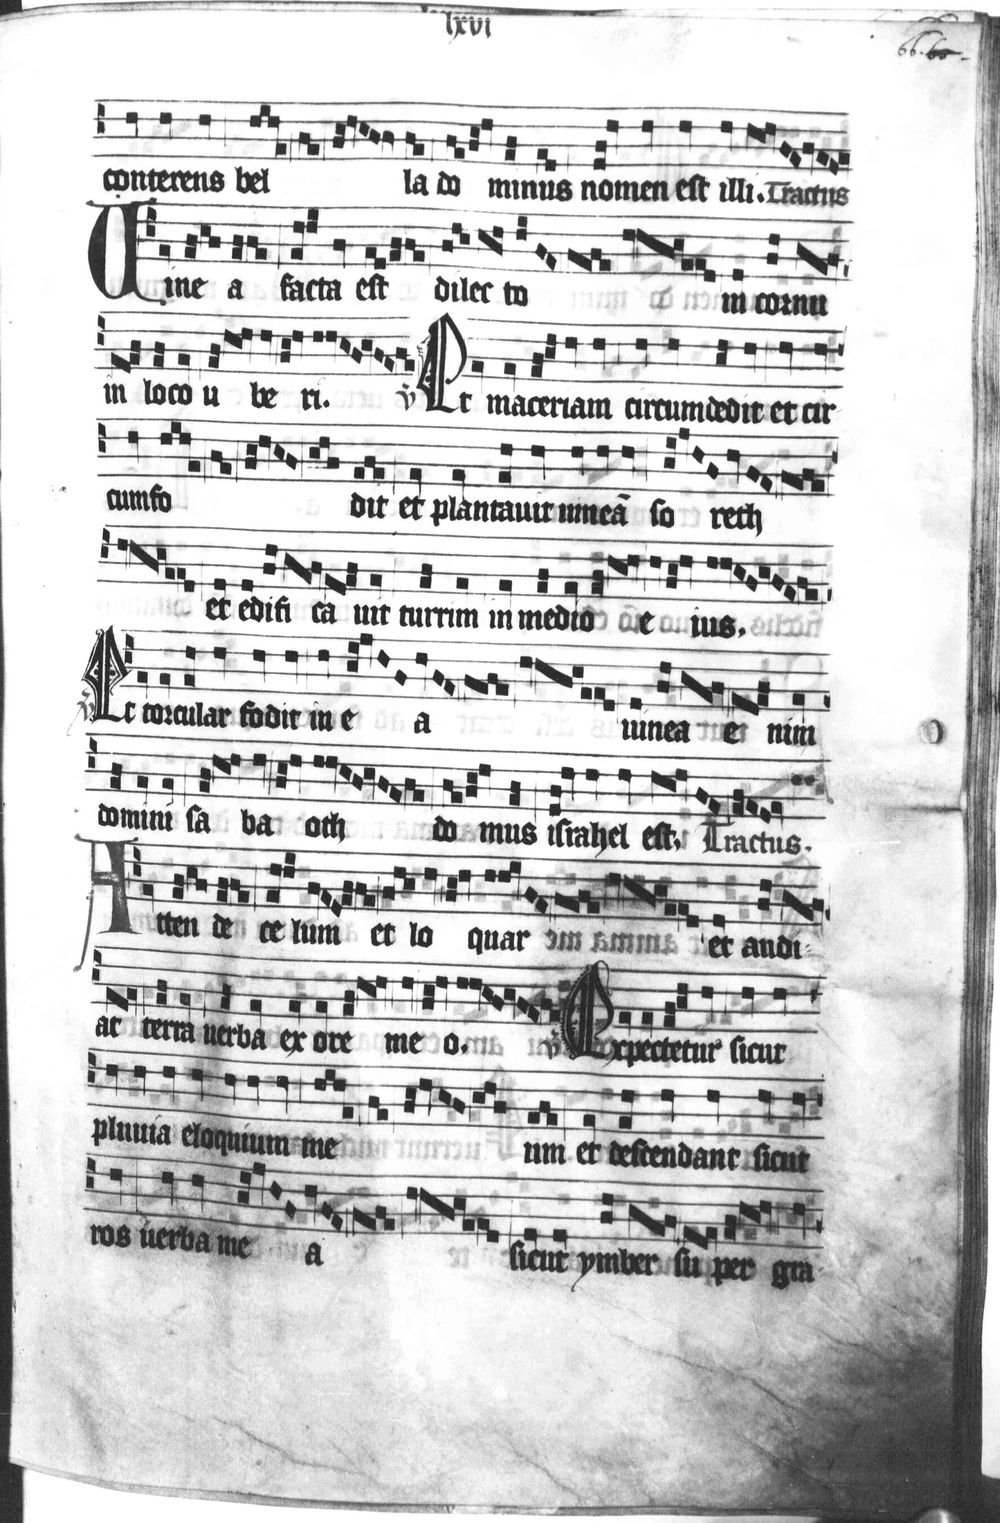 lxvi
66. 66.
conterens bel la do minus nomen est illi. Tractus
Uine a facta est dilec to in cornu
in loco u be ri. v Et maceriam circumdedit et cir
cumfo dit et plantauit uineã so reth
et edifi ca uit turrim in medio e ius.
v Et torcular fodit in e a uinea e nim
domini sa ba oth do mus israhel est. Tractus.
Atten de ce lum et lo quar et audi
at terra uerba ex ore me o. v Expectetur sicut
pluuia eloquium me um et descendant sicut
ros uerba me a sicut ymber su per gra